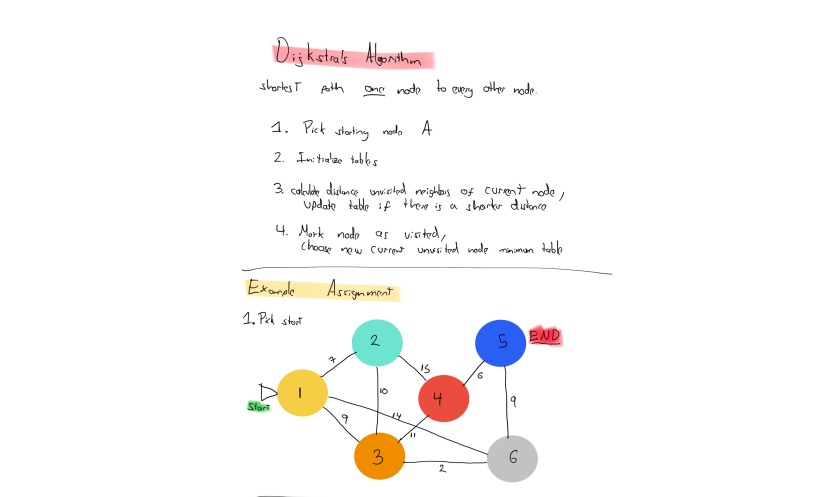 Dijkstra's Algorithm
shortest path one node to every other node.
1. Pick starting node A
2. Initialize tables
3. calculate distance unvisited neighbors of current node,
update table if there is a shorter distance
4. Mark node as visited,
choose new current unvisited node minimum table
Example Assignment
1. Pick start
2
5
END
7
15
6
1
10
4
9
Start
9
14
11
3
2
6